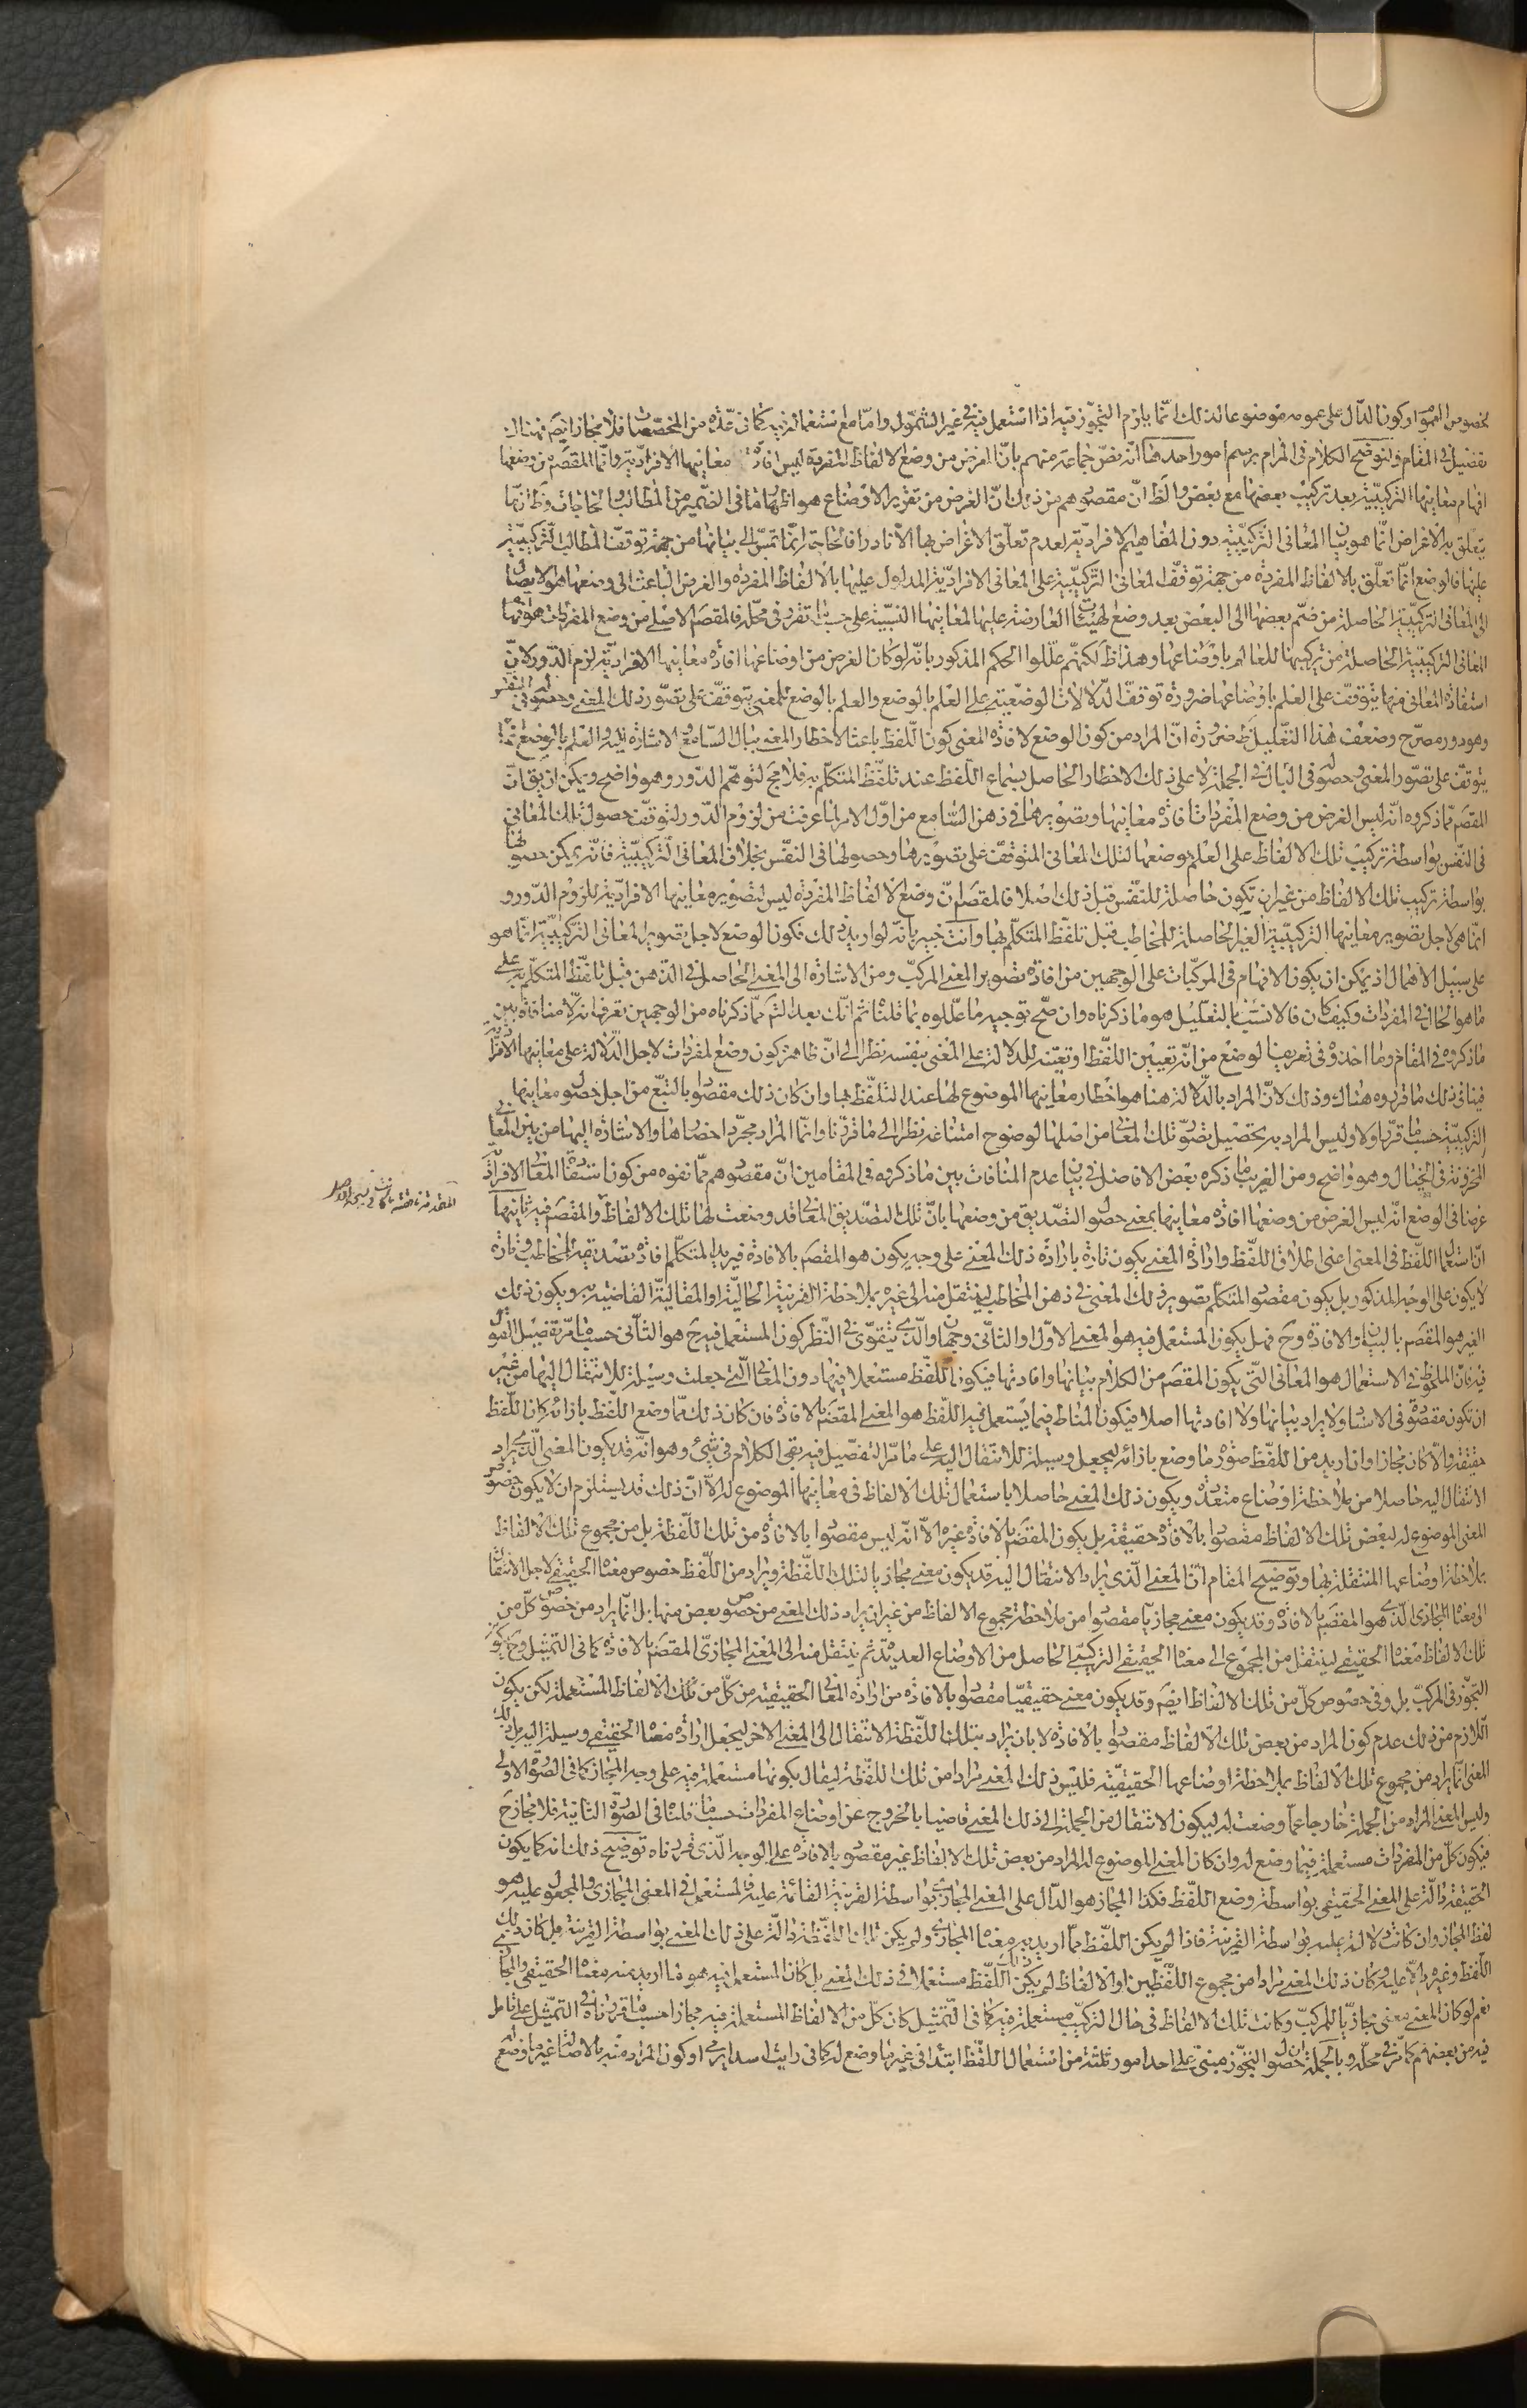 بخصوص العموم او كون الدال على عمومه موضوعا لذلك انما يلزم التجوز فيه اذا استعمل فيه في غير الشمول واما مع استعماله فيه كما في عدة من المخصصات فلا مجاز ايضا فهناك
تفصيل في المقام ولنوضح الكلام في المرام برسم امور احدها انه نص جماعة منهم بان الغرض من وضع الالفاظ المفردة ليس افادة معانيها الافرادية وانما المقصم من وضعها
افهام معانيها التركيبية بعد تركيب بعضها مع بعض والظ ان مقصودهم من ذلك ان الغرض من تقرير الاوضاع هو اظهار ما في الضمير من المطالب والحاجات وظ ان ما
يتعلق به الاغراض انما هو بيان المعاني التركيبية دون المفاهيم الافرادية لعدم تعلق الاغراض بها الا نادرا فالحاجة انما تمس الى بيانها من جهة توقف المطالب التركيبية
عليها فالوضع انما تعلق بالالفاظ المفردة من جهة توقف المعاني التركيبية على المعاني الافرادية المدلول عليها بالالفاظ المفردة والغرض الباعث الى وضعها هو الايصال
الى المعاني التركيبية الحاصلة من ضم بعضها الى البعض بعد وضع الهيئات العارضة عليها لمعانيها النسبية على حسب ما تقرر في محله فالمقصم الاصلي من وضع المفردات هو افهام
المعاني التركيبية الحاصلة من تركيبها للعالم باوضاعها وهذا ظ لكنهم عللوا الحكم المذكور بانه لو كان الغرض من اوضاعها افادة معانيها الافرادية لزم الدور لان
استفادة المعاني منها يتوقف على العلم باوضاعها ضرورة توقف الدلالات الوضعية على العلم بالوضع والعلم بالوضع للمعنى يتوقف على تصور ذلك المعنى وحصوله في النفس
وهو دور مصرح وضعف هذا التعليل ظ ضرورة ان المراد من كون الوضع لافادة المعنى كون اللفظ باعثا لاخطار المعنى ببال السامع والاشارة اليه والعلم بالوضع انما
يتوقف على تصور المعنى وحصوله في البال في الجملة لا على ذلك الاخطار الحاصل بسماع اللفظ عند تلفظ المتكلم به فلا مج لتوهم الدور وهو واضح ويمكن ان يق ان
المقصم مما ذكروه انه ليس الغرض من وضع المفردات افادة معانيها وتصويرها في ذهن السامع من اول الامر لما عرفت من لزوم الدور لتوقف حصول تلك المعاني
في النفس بواسطة تركيب تلك الالفاظ على العلم بوضعها لتلك المعاني المتوقف على تصورها وحصولها في النفس بخلاف المعاني التركيبية فانه يمكن حصولها
بواسطة تركيب تلك الالفاظ من غير ان تكون حاصلة للنفس قبل ذلك اصلا فالمقصم ان وضع الالفاظ المفردة ليس لتصوير معانيها الافرادية للزوم الدور و
انما هي لاجل تصوير معانيها التركيبية الغير الحاصلة للمخاطب قبل تلفظ المتكلم بها وانت خبير بانه لو اريد ذلك فكون الوضع لاجل تصوير المعاني التركيبية انما هو
على سبيل الاهمال اذ يمكن ان يكون الافهام في المركبات على الوجهين من افادة تصوير المعنى المركب ومن الاشارة الى المعنى الحاصل في الذهن قبل تلفظ المتكلم به على
ما هو الحال في المفردات وكيف كان فالانسب بالتعليل هو ما ذكرناه وان صح توجيه ما عللوه بما قلنا ثم انك بعد التم مما ذكرناه من الوجهين تعرف انه لا منافاة بين
ما ذكروه في المقام وما اخذوه في تعريف الوضع من انه تعيين اللفظ او تعينه للدلالة على المعنى بنفسه نظرا الى ان ظاهره كون وضع المفردات لاجل الدلالة على معانيها الافرادية
فينافي ذلك ما قرروه هناك وذلك لان المراد بالدلالة هنا هو اخطار معانيها الموضوع لها عند التلفظ بها وان كان ذلك مقصودا بالتبع من اجل حصول معانيها
التركيبية حسبما قرر اولا وليس المراد به تحصيل تصور تلك المعاني من اصلها لوضوح امتناعه نظرا الى ما قررنا وانما المراد مجرد احضارها والاشارة اليها من بين المعاني
المخزونة في الخيال وهو واضح ومن الغريب ما ذكره بعض الافاضل في بيان عدم المنافات بين ما ذكروه في المقامين ان مقصودهم مما نفوه من كون استفادة المعاني الافرادية
غرضا في الوضع انه ليس الغرض من وضعها افادة معانيها بمعنى حصول التصديق من وضعها بان تلك التصديق المعاني قد وضعت لها تلك الالفاظ والمقصم فيه ثانيها
ان استعمال اللفظ في المعنى اعني اطلاق اللفظ وارادة المعنى يكون تارة بارادة ذلك المعنى على وجه يكون هو المقصم بالافادة فيريد المتكلم افادة تصديقه المخاطب وتارة
لا يكون على الوجه المذكور بل يكون مقصود المتكلم تصوير ذلك المعنى في ذهن المخاطب لينتقل منه الى غيره بملاحظة القرينة الحالية او المقالية القاضية به ويكون ذلك
الغير هو المقصم بالبيان والافادة وح فهل يكون المستعمل فيه هو المعنى الاول او الثاني وجهان والذي يتقوى في النظر كون المستعمل فيه ح هو الثاني حسبما مر تفصيل القول
فيه فان الملحوظ في الاستعمال هو المعاني التي يكون المقصم من الكلام بيانها وافادتها فيكون اللفظ مستعملا فيها دون المعاني التي جعلت وسيلة للانتقال اليها من غير
ان تكون مقصودة في الاستعمال ولا يراد بيانها ولا افادتها اصلا فيكون المناط فيما يستعمل فيه اللفظ هو المعنى المقصم بالافادة فان كان ذلك مما وضع اللفظ بازائه كان اللفظ
حقيقة والا كان مجازا وان اريد من اللفظ صورة ما وضع بازائه ليجعل وسيلة للانتقال اليه على ما مر التفصيل فيه بقي الكلام في شيئ وهو انه قد يكون المعنى الذي يراد
الانتقال اليه حاصلا من ملاحظة اوضاع متعددة ويكون ذلك المعنى حاصلا باستعمال تلك الالفاظ في معانيها الموضوع له الا ان ذلك قد يستلزم ان لا يكون خصوص
المعنى الموضوع له لبعض تلك الالفاظ مقصودا بالافادة حقيقة بل يكون المقصم بالافادة غيره الا انه ليس مقصودا بالافادة من تلك اللفظة بل من مجموع تلك الالفاظ
بملاحظة اوضاعها المتعلقة بها وتوضيح المقام ان المعنى الذي يراد الانتقال اليه قد يكون معنى مجازيا لتلك اللفظة ويراد من اللفظ خصوص معناه الحقيقي لاجل الانتقال
الى معناه المجازي الذي هو المقصم بالافادة وقد يكون معنى مجازيا مقصودا من ملاحظة مجموع الالفاظ من غير ان يراد ذلك المعنى من خصوص بعض منها بل انما يراد من خصوص كل من
تلك الالفاظ معناه الحقيقي لينتقل من المجموع الى معناه الحقيقي التركيبي الحاصل من الاوضاع العديدة ثم ينتقل منه الى المعنى المجازي المقصم بالافادة كما في التمثيل وح يكون
التجوز في المركب بل وفي خصوص كل من تلك الالفاظ ايضا وقد يكون معنى حقيقيا مقصودا بالافادة من ارادة المعاني الحقيقية من كل من تلك الالفاظ المستعملة لكن يكون
اللازم من ذلك عدم كون المراد من بعض تلك الالفاظ مقصودا بالافادة لا بان يراد بتلك اللفظة الانتقال الى المعنى الاخر ليجعل ارادة معناه الحقيقي وسيلة اليه بل ذلك
المعنى انما يراد من مجموع تلك الالفاظ بملاحظة اوضاعها الحقيقية فليس ذلك المعنى مرادا من تلك اللفظة ليقال بكونها مستعملة فيه على وجه المجاز كما في الصورة الاولى
وليس المعنى المراد من الجملة خارجا عما وضعت له ليكون الانتقال من الجملة الى ذلك المعنى قاضيا بالخروج عن اوضاع المفردات حسبما قلنا في الصورة الثانية فلا مجاز ح
فيكون كل من المفردات مستعملة فيما وضع له وان كان المعنى الموضوع له المراد من بعض تلك الالفاظ غير مقصود بالافادة على الوجه الذي قررناه توضيح ذلك انه كما يكون
الحقيقة دالة على المعنى الحقيقي بواسطة وضع اللفظ فكذا المجاز هو الدال على المعنى المجازي بواسطة القرينة القائمة عليه فالمستعمل في المعنى المجازي والمجعول عليه هو
لفظ المجاز وان كانت دلالته عليه بواسطة القرينة فاذا لم يكن اللفظ مما اريد به معناه المجازي ولم يكن تلك اللفظة دالة على ذلك المعنى بواسطة القرينة بل كان ذلك
اللفظ وغيره دالا عليه وكان ذلك المعنى مرادا من مجموع اللفظين او الالفاظ لم يكن ذلك اللفظ مستعملا في ذلك المعنى بل كان المستعمل فيه هو ما اريد منه معناه الحقيقي والمجازي
نعم لو كان المعنى معنى مجازيا للمركب وكانت تلك الالفاظ في حال التركيب مستعملة فيه كما في التمثيل كان كل من الالفاظ المستعملة فيه مجازا حسبما قررناه في التمثيل على تامل
فيه من بعضهم كما مر في محله وبالجملة ان حصول التجوز مبني على احد امور ثلثة من استعمال اللفظ ابتداء في غير ما وضع له كما في رايت اسدا يرمي او كون المراد منه بالاصالة غير ما وضع